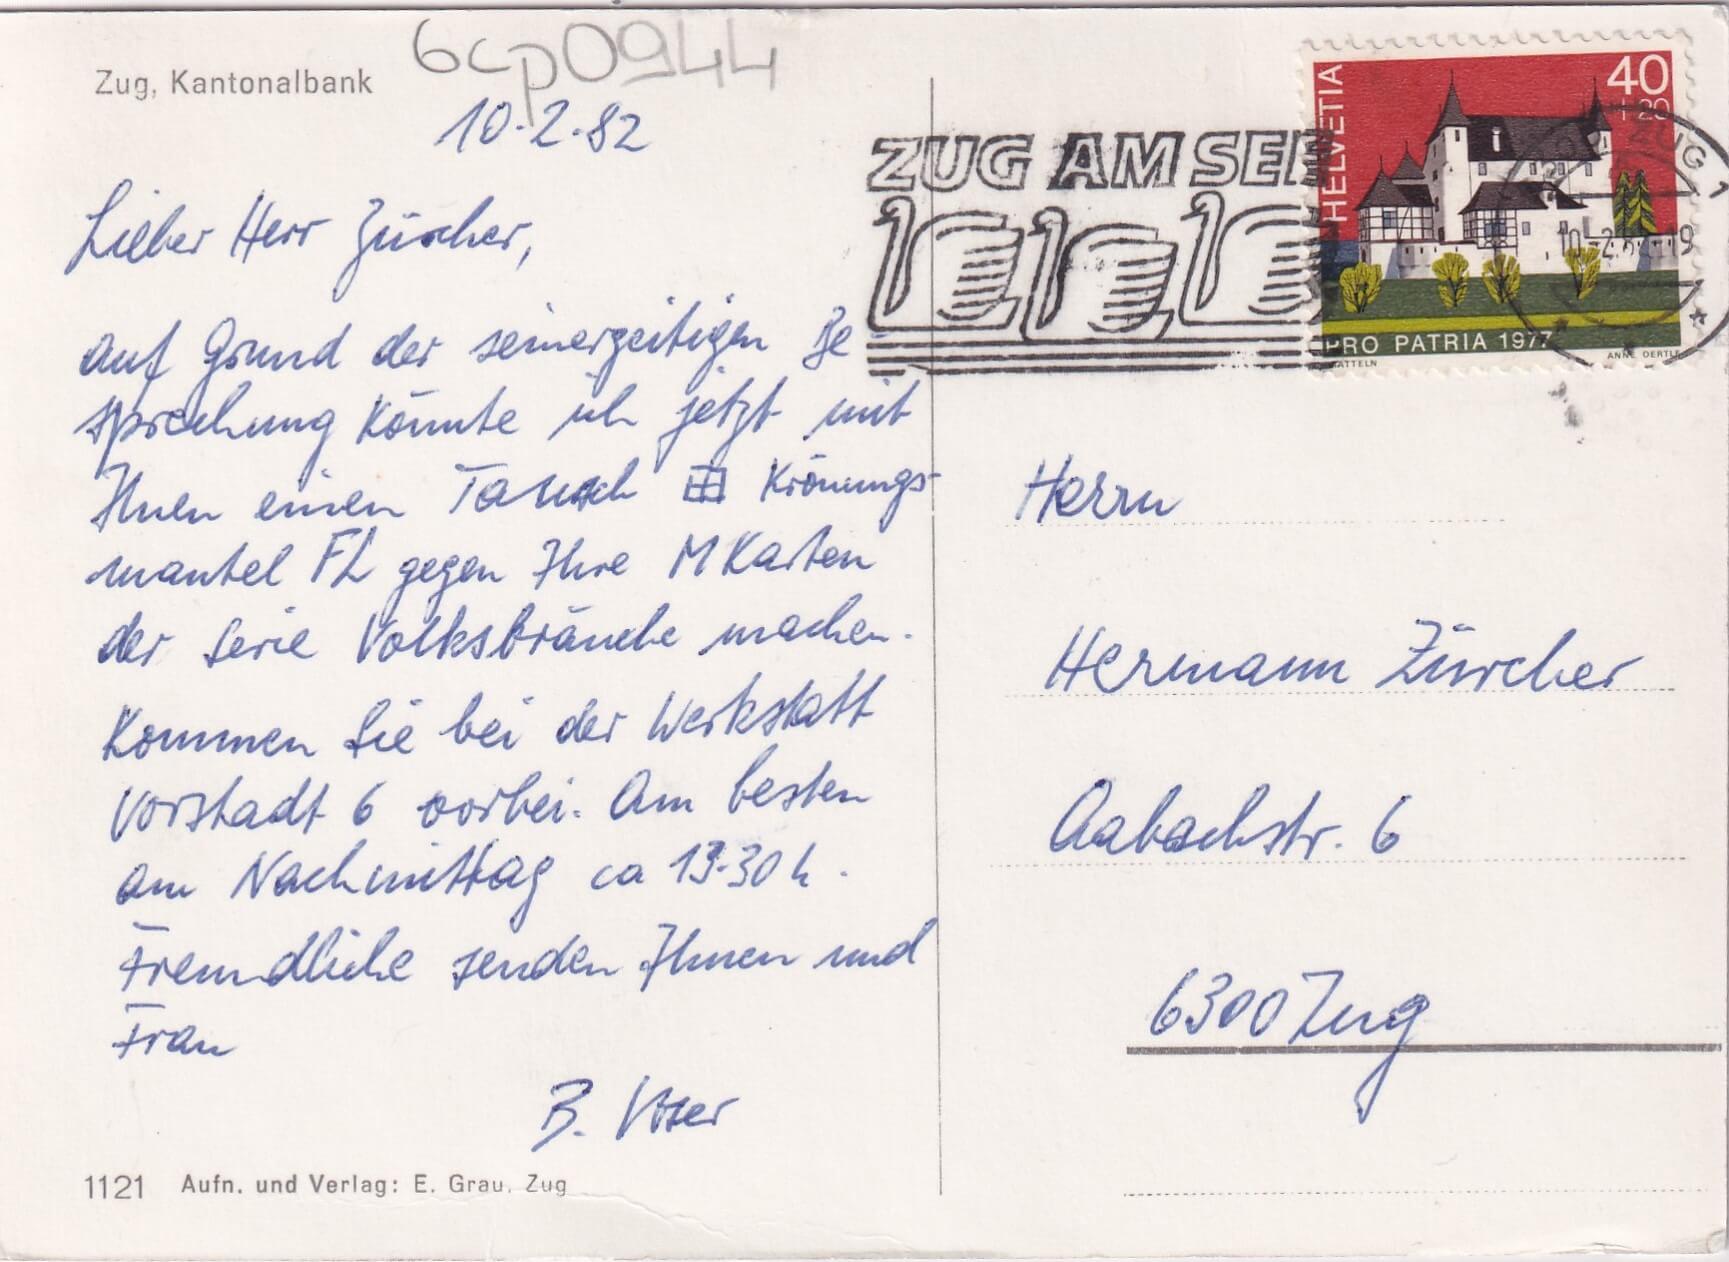 6cp0944
Zug, Kantonalbank
10.2.82
Lieber Herr Zürcher,
auf Grund der seinerzeitigen Be-
sprechung könnte ich jetzt mit
Ihnen einen Tausch ⊞ Krönungs-
mantel FL gegen Ihre MKarten
der Serie Volksbräuche machen.
Kommen Sie bei der Werkstatt
Vorstadt 6 vorbei. Am besten
am Nachmittag ca 13.30 h.
Freundliche senden Ihnen und
Frau
B.
1121 Aufn. und Verlag: E. Grau, Zug
ZUG AM SEE
HELVETIA
40
+20
PRO PATRIA 1977
ANNE OERTLE
ZUG 1
10.-2.82-19
Herrn
Hermann Zürcher
Aabachstr. 6
6300 Zug